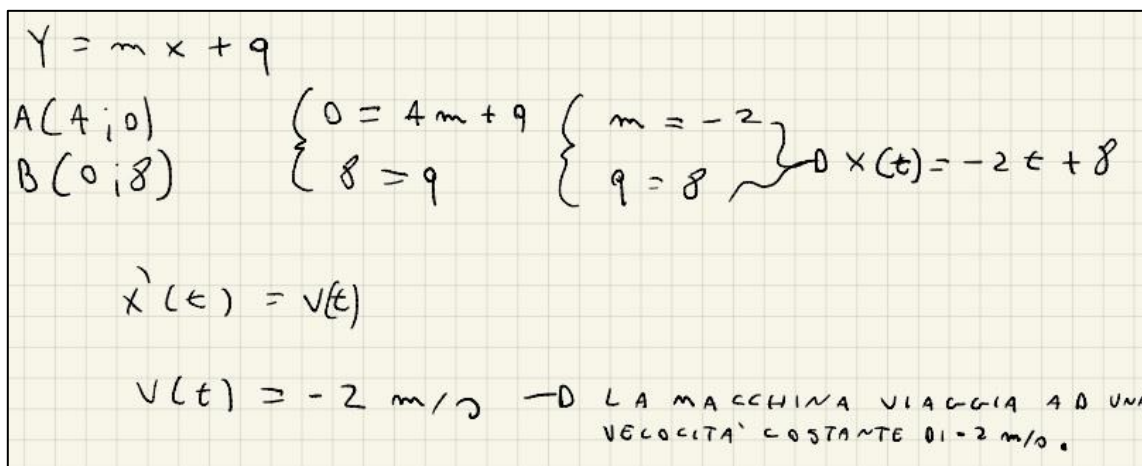 Y = m x + q
A(4;0) { 0 = 4m + q { m = -2
B(0;8) { 8 = q { q = 8 → x(t) = -2t + 8
x'(t) = v(t)
v(t) = -2 m/s → LA MACCHINA VIAGGIA AD UNA
VELOCITA' COSTANTE DI -2 m/s.